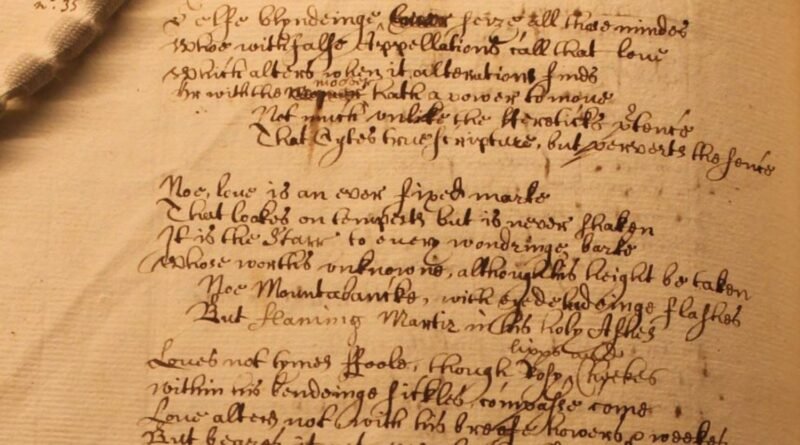 n°. 35
selfe blyndeinge seize all those mindes
Whoe with false Appellations call that love
Which alters when it alterations finds
Or with the mover hath a power to move
Not much unlike the Hereticks p̃tence
That Cytes true scripture, but perverts the sence
Noe, love is an ever fixed marke
That lookes on tempests but is never shaken
It is the Starr to every wondringe barke
Whose worths unknowne, although his height be taken
Noe Mountabancke, with eyedeludeinge flashes
But flaming Martir in his holy Ashes
lipps and
Loves not tymes ffoole, though Rosy Cheekes
Within his bendeinge sickles compasse come
Love alters not with his breife howers & weekes
But